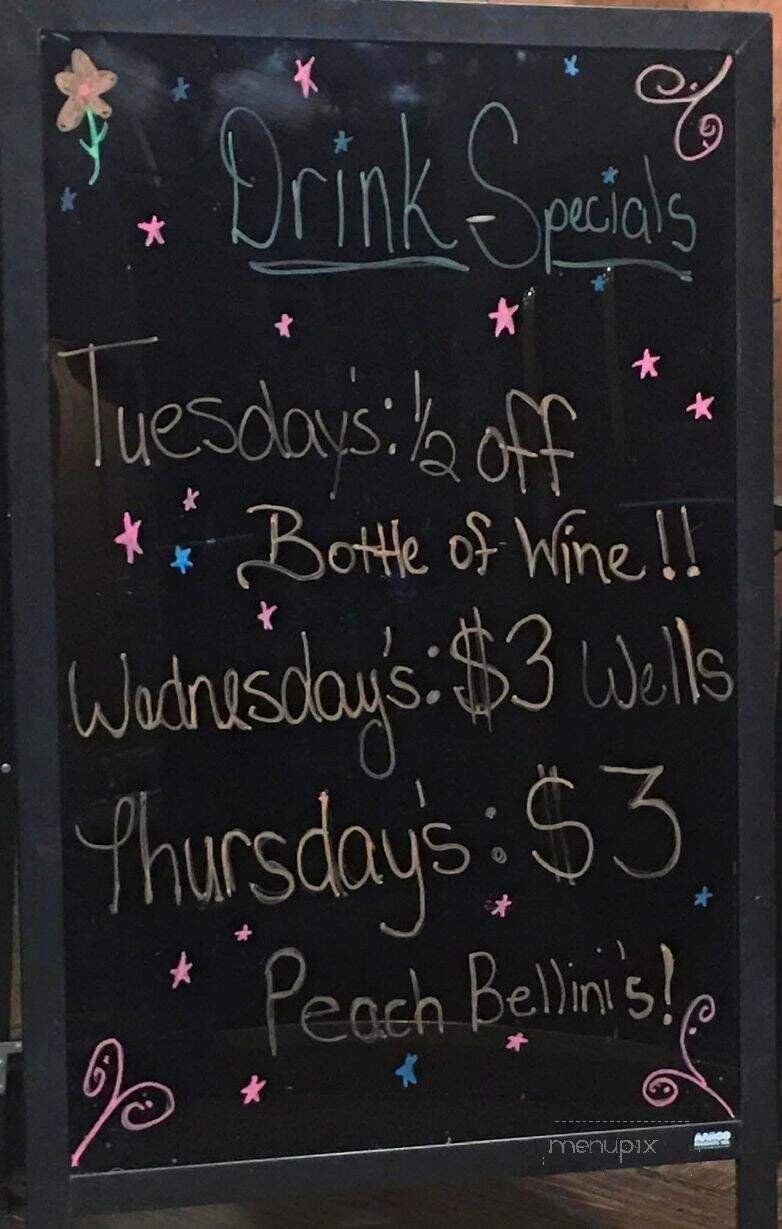 Drink Specials
Tuesday's: 1/2 off
Bottle of Wine!!
Wednesday's: $3 Wells
Thursday's: $3
Peach Bellini's!
menupix
AARCO